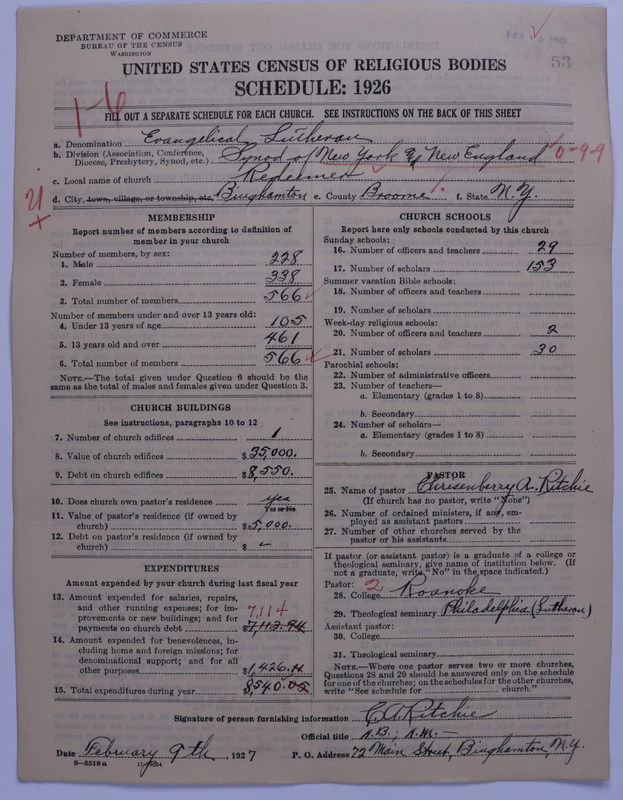 DEPARTMENT OF COMMERCE
BUREAU OF THE CENSUS
WASHINGTON
53
UNITED STATES CENSUS OF RELIGIOUS BODIES
SCHEDULE: 1926
1-6
FILL OUT A SEPARATE SCHEDULE FOR EACH CHURCH. SEE INSTRUCTIONS ON THE BACK OF THIS SHEET
a. Denomination Evangelical Lutheran
b. Division (Association, Conference, Diocese, Presbytery, Synod, etc.) Synod of New York & New England 0-9-9
c. Local name of church Redeemer
d. City, town, village, or township, etc. Binghamton e. County Broome f. State N.Y.
MEMBERSHIP
Report number of members according to definition of
member in your church
Number of members, by sex:
1. Male 228
2. Female 338
3. Total number of members 566
Number of members under and over 13 years old:
4. Under 13 years of age 105
5. 13 years old and over 461
6. Total number of members 566
NOTE.—The total given under Question 6 should be the
same as the total of males and females given under Question 3.
CHURCH BUILDINGS
See instructions, paragraphs 10 to 12
7. Number of church edifices 1
8. Value of church edifices $35,000.
9. Debt on church edifices $8,550.
10. Does church own pastor's residence yes
Yes or No
11. Value of pastor's residence (if owned by
church) $5,000.
12. Debt on pastor's residence (if owned by
church) $ –
EXPENDITURES
Amount expended by your church during last fiscal year
13. Amount expended for salaries, repairs,
and other running expenses; for im-
provements or new buildings; and for
payments on church debt 7,114 $7,113.94
14. Amount expended for benevolences, in-
cluding home and foreign missions; for
denominational support; and for all
other purposes $1,426.11
15. Total expenditures during year $8,540.05
CHURCH SCHOOLS
Report here only schools conducted by this church
Sunday schools:
16. Number of officers and teachers 29
17. Number of scholars 153
Summer vacation Bible schools:
18. Number of officers and teachers
19. Number of scholars
Week-day religious schools:
20. Number of officers and teachers 2
21. Number of scholars 30
Parochial schools:
22. Number of administrative officers
23. Number of teachers—
a. Elementary (grades 1 to 8)
b. Secondary
24. Number of scholars—
a. Elementary (grades 1 to 8)
b. Secondary
PASTOR
25. Name of pastor Chrisenberry A. Ritchie
(If church has no pastor, write "None")
26. Number of ordained ministers, if any, em-
ployed as assistant pastors
27. Number of other churches served by the
pastor or his assistants
If pastor (or assistant pastor) is a graduate of a college or
theological seminary, give name of institution below. (If
not a graduate, write "No" in the space indicated.)
Pastor: 2
28. College Roanoke
29. Theological seminary Philadelphia (Lutheran)
Assistant pastor:
30. College
31. Theological seminary
NOTE.—Where one pastor serves two or more churches,
Questions 28 and 29 should be answered only on the schedule
for one of the churches; on the schedules for the other churches,
write "See schedule for church."
Signature of person furnishing information C. A. Ritchie
Official title A.B., A.M. –
Date February 9th, 1927 P. O. Address 72 Main Street, Binghamton, N.Y.
8—5518 a